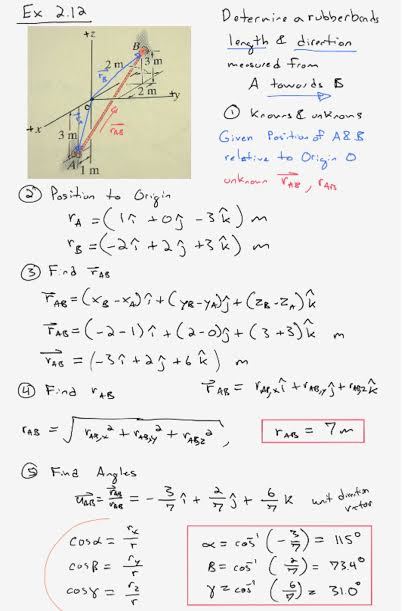 Ex 2.12
Determine a rubberbands
length & direction
measured from
A towards B
① knowns & unknowns
Given Position of A&B
relative to Origin O
unknown r⃗AB, rAB
+z
B
2 m
3 m
r⃗B
2 m
+y
O
+x
r⃗A
r⃗AB
3 m
A
1 m
② Position to Origin
rA = (1î + 0ĵ - 3k̂) m
rB = (-2î + 2ĵ + 3k̂) m
③ Find r⃗AB
r⃗AB = (xB - xA)î + (yB - yA)ĵ + (zB - zA)k̂
r⃗AB = (-2 - 1)î + (2 - 0)ĵ + (3 + 3)k̂ m
r⃗AB = (-3î + 2ĵ + 6k̂) m
④ Find rAB r⃗AB = rAB,xî + rAB,yĵ + rABzk̂
rAB = √rAB,x² + rAB,y² + rABz², rAB = 7m
⑤ Find Angles
u⃗AB = r⃗AB/rAB = -3/7 î + 2/7 ĵ + 6/7 k unit direction vector
cosα = rx/r
cosβ = ry/r
cosγ = rz/r
α = cos⁻¹(-3/7) = 115°
β = cos⁻¹(2/7) = 73.4°
γ = cos⁻¹(6/7) = 31.0°